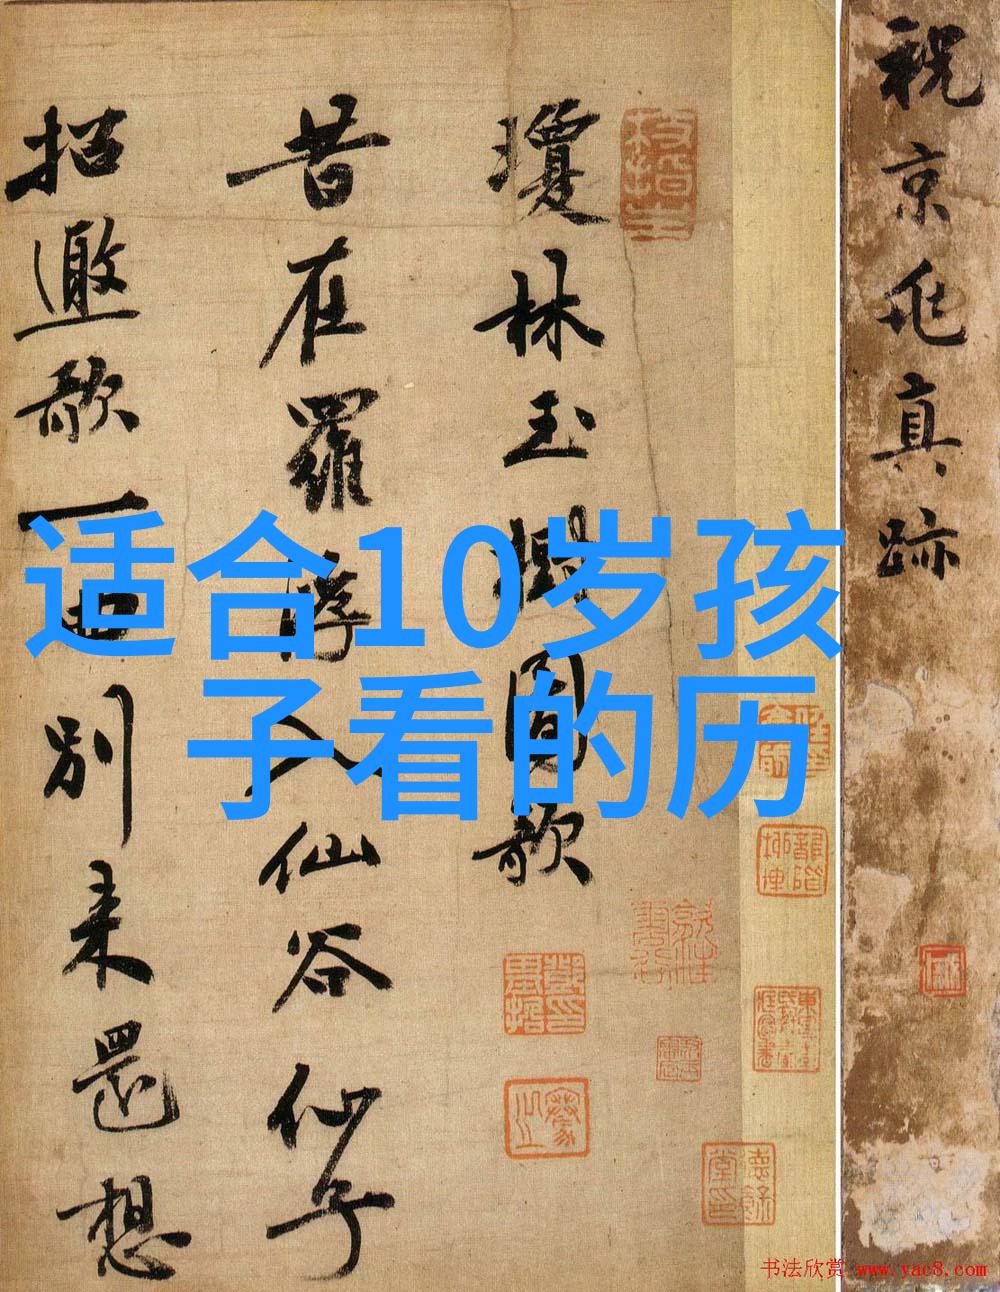 适合10岁孩
子看的历
祝京兆真跡
瓊林玉樹歌
昔在羅浮仙谷仙子
招邀歌一曲別來還想
书法欣赏 www.yac8.com